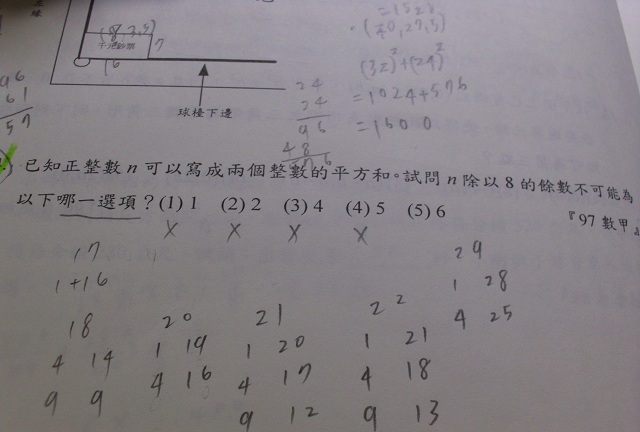 =1528
(40,27,5)
(32)²+(24)²
=1024+576
=1600
千元鈔票
7
16
球檯下邊
24
24
96
48
576
96
61
57
已知正整數 n 可以寫成兩個整數的平方和。試問 n 除以 8 的餘數不可能為
以下哪一選項？(1) 1 (2) 2 (3) 4 (4) 5 (5) 6
『97 數甲』
X X X X
17
1+16
29
1 28
4 25
18
4 14
9 9
20
1 19
4 16
21
1 20
4 17
9 12
22
1 21
4 18
9 13